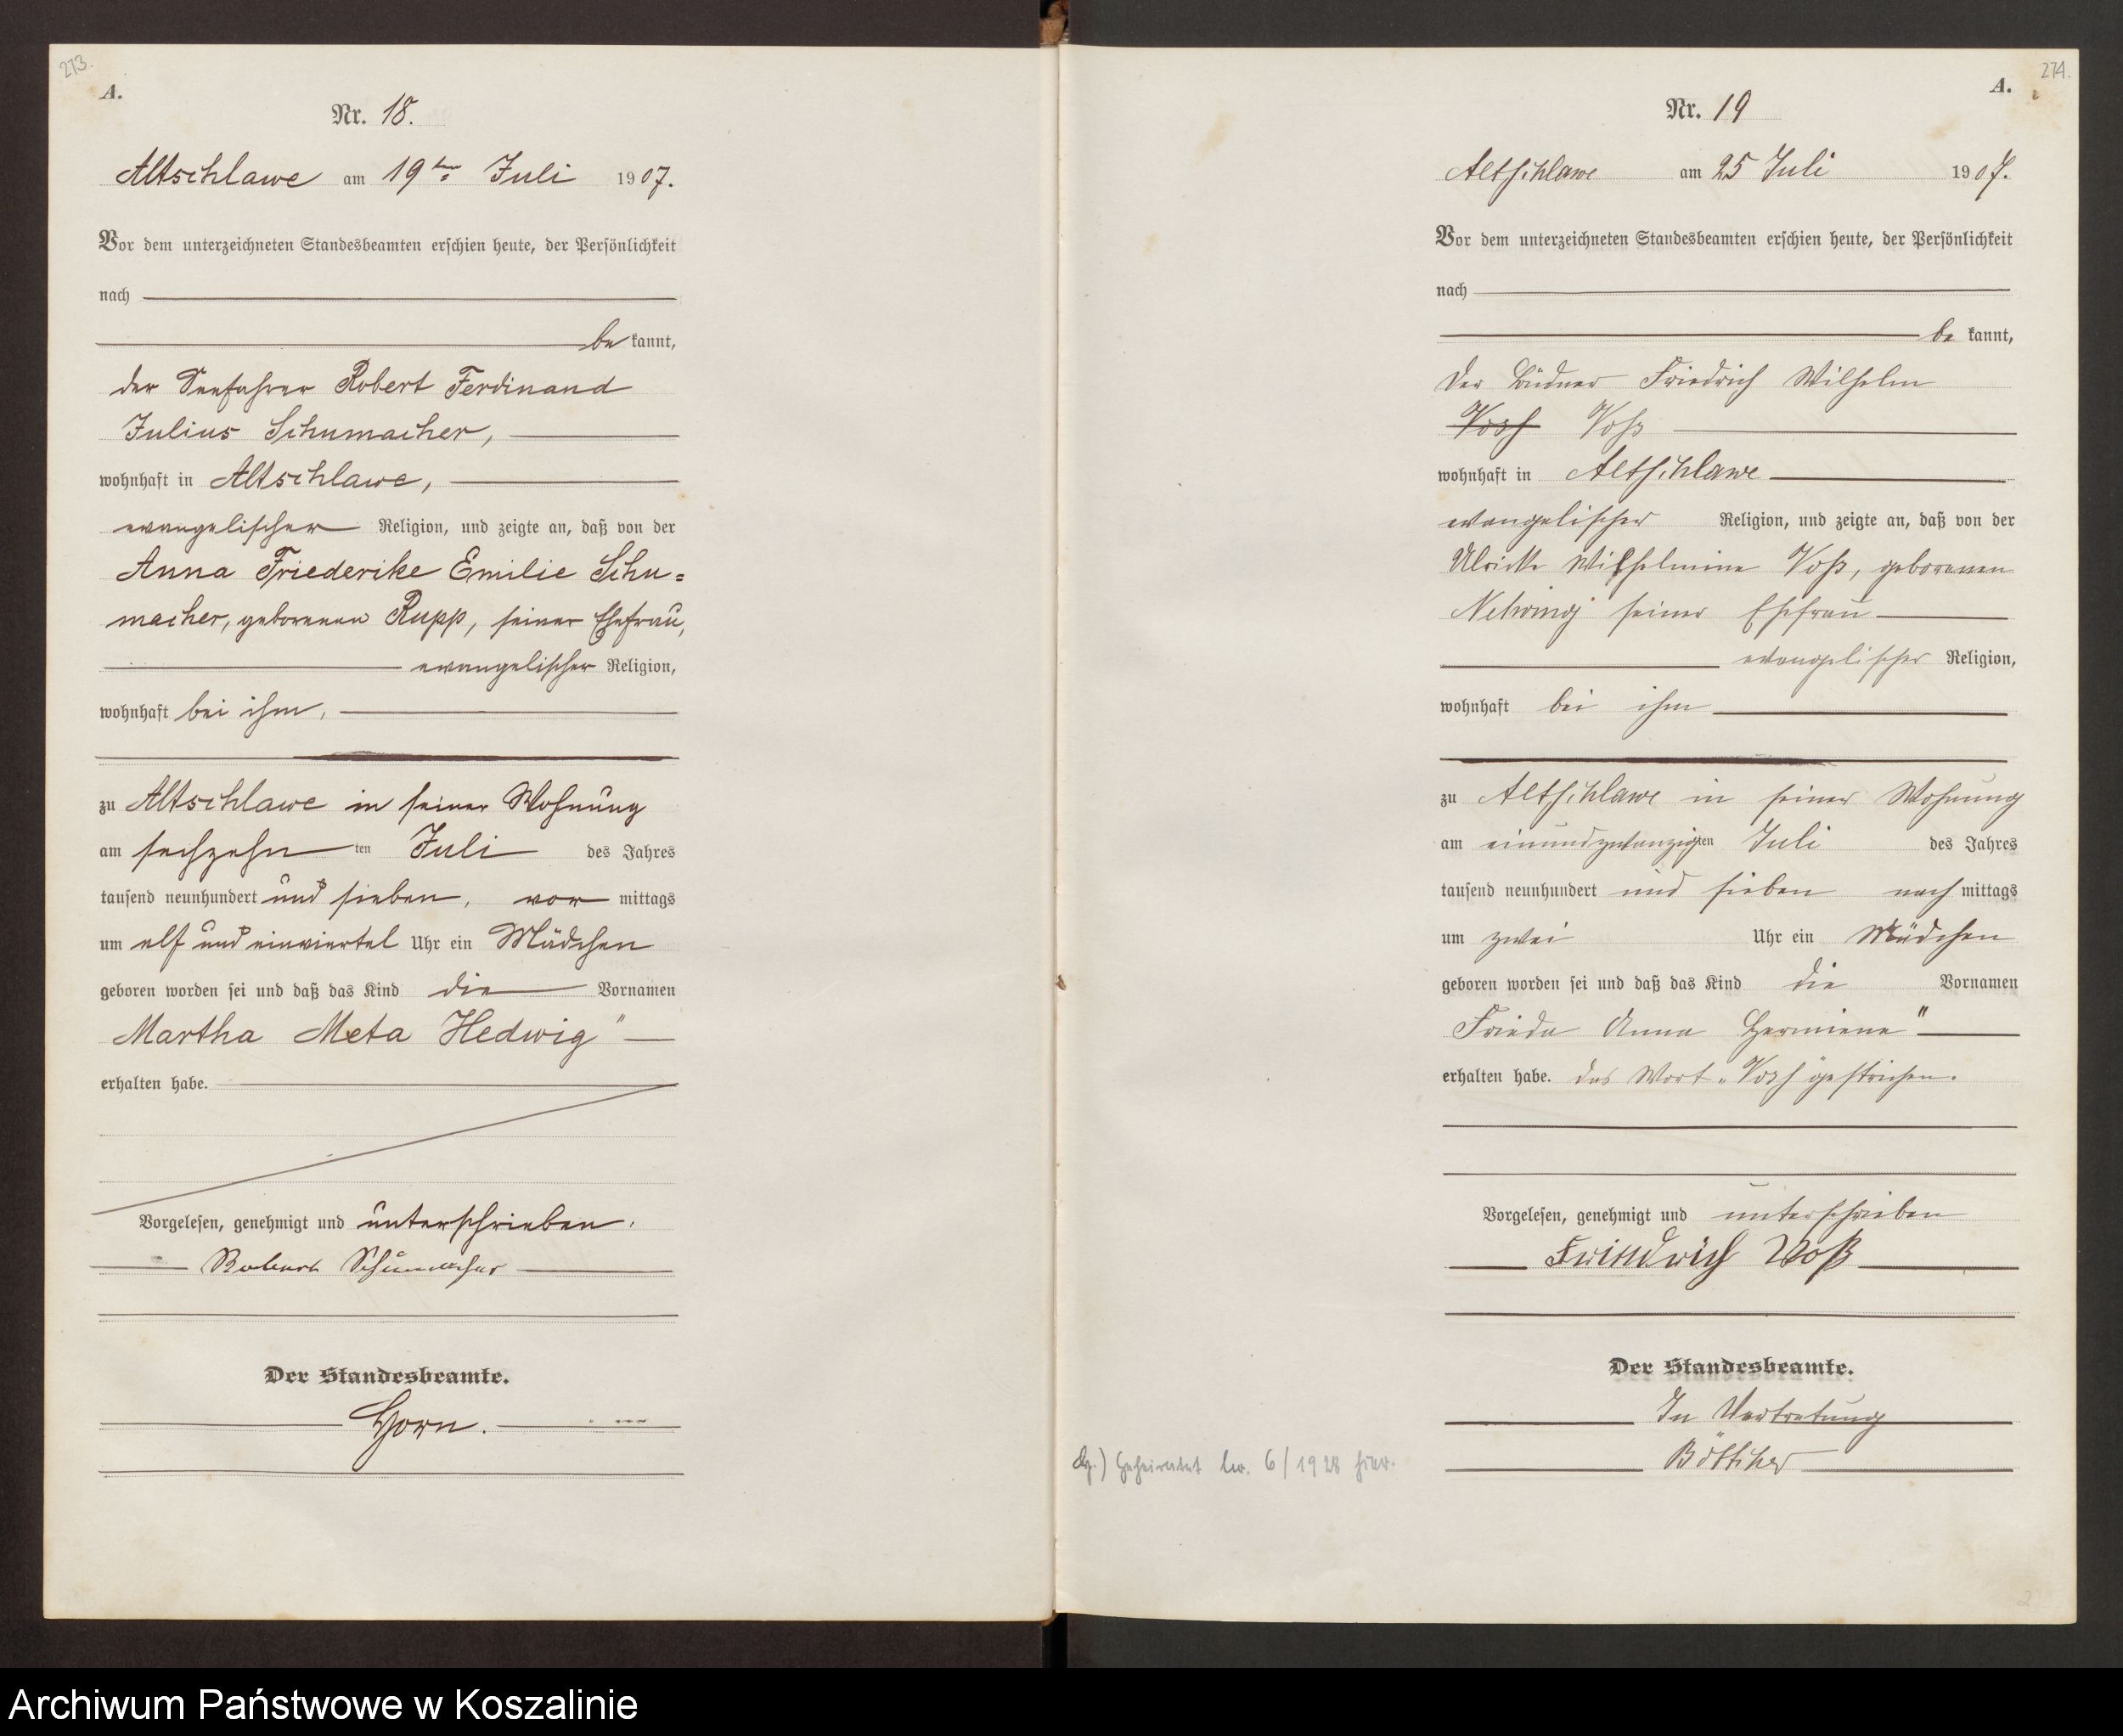 273.
A.
Nr. 18.
Altschlawe am 19ten Juli 1907.
Vor dem unterzeichneten Standesbeamten erschien heute, der Persönlichkeit
nach
be kannt,
der Seefahrer Robert Ferdinand
Julius Schumacher,
wohnhaft in Altschlawe,
evangelischer Religion, und zeigte an, daß von der
Anna Friederike Emilie Schu=
macher, geborenen Rupp, seiner Ehefrau,
evangelischer Religion,
wohnhaft bei ihm,
zu Altschlawe in seiner Wohnung
am sechzehn ten Juli des Jahres
tausend neunhundert und sieben, vor mittags
um elf und einviertel Uhr ein Mädchen
geboren worden sei und daß das Kind die Vornamen
Martha Meta Hedwig"
erhalten habe.
Vorgelesen, genehmigt und unterschrieben.
Robert Schumacher
Der Standesbeamte.
Horn.
274.
A.
Nr. 19
Altschlawe am 25 Juli 1907.
Vor dem unterzeichneten Standesbeamten erschien heute, der Persönlichkeit
nach
be kannt,
der Büdner Friedrich Wilhelm
Vosh Voß
wohnhaft in Altschlawe
evangelischer Religion, und zeigte an, daß von der
Ulricke Wilhelmine Voß, geborenen
Nehring seiner Ehefrau
evangelischer Religion,
wohnhaft bei ihm
zu Altschlawe in seiner Wohnung
am einundzwanzigten Juli des Jahres
tausend neunhundert und sieben nach mittags
um zwei Uhr ein Mädchen
geboren worden sei und daß das Kind die Vornamen
Frieda Anna Hermiene"
erhalten habe. das Wort „Vosh gestrichen.
Vorgelesen, genehmigt und unterschrieben
Friedrich Voß
Der Standesbeamte.
In Vertretung
Böttcher
) Geheiratet 6/1928 hier.
Archiwum Państwowe w Koszalinie